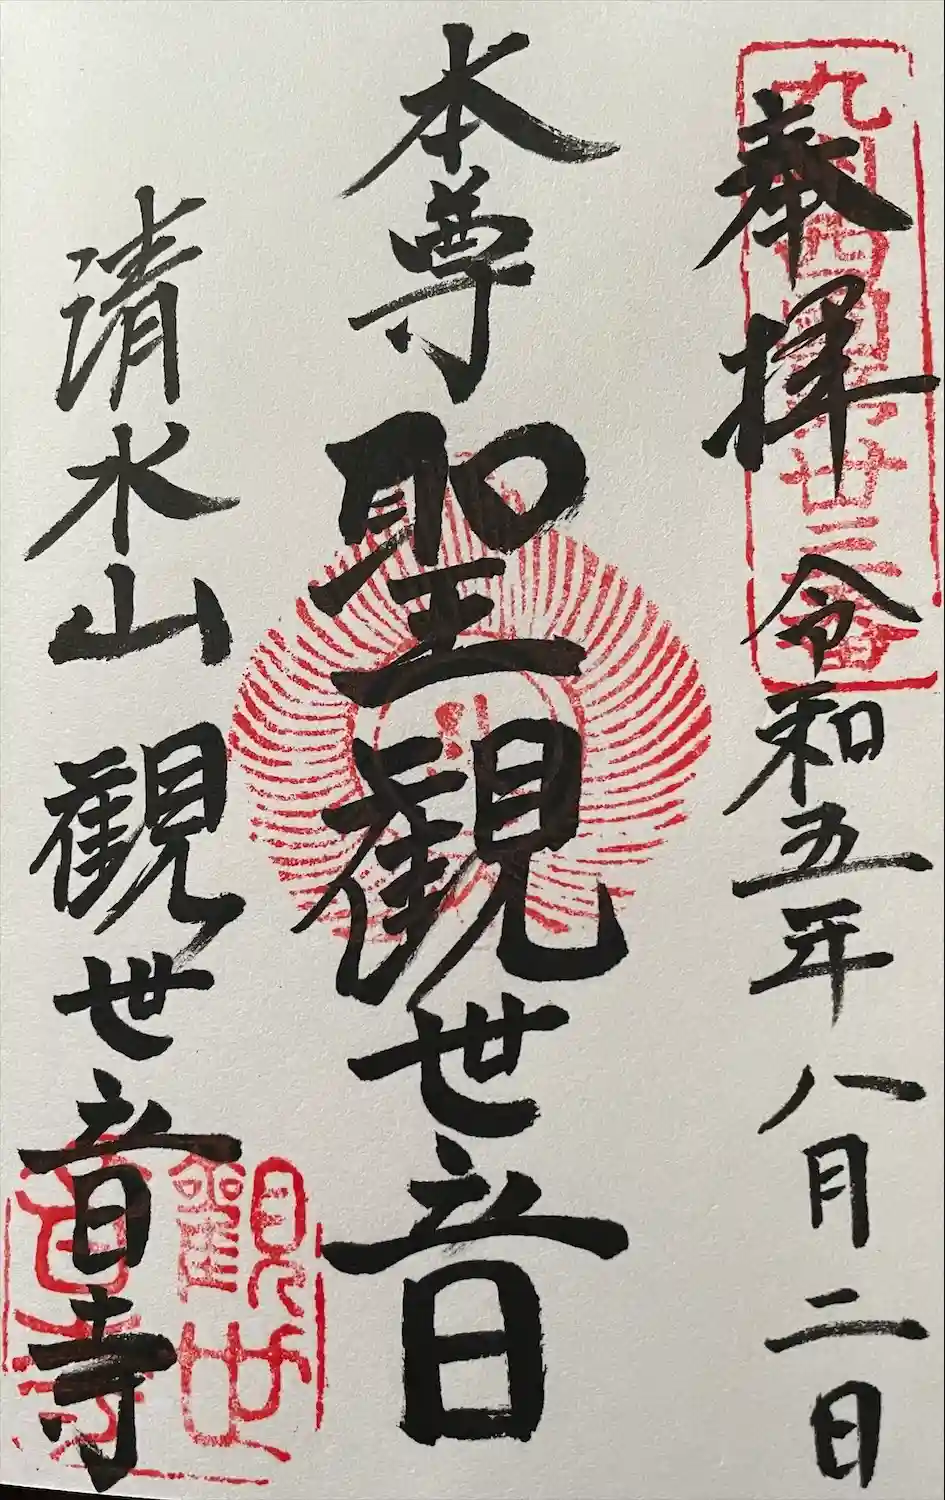 奉拝 令和五年八月二日
本尊 聖観世音
清水山 観世音寺
九州西国第卅三番
観世音寺